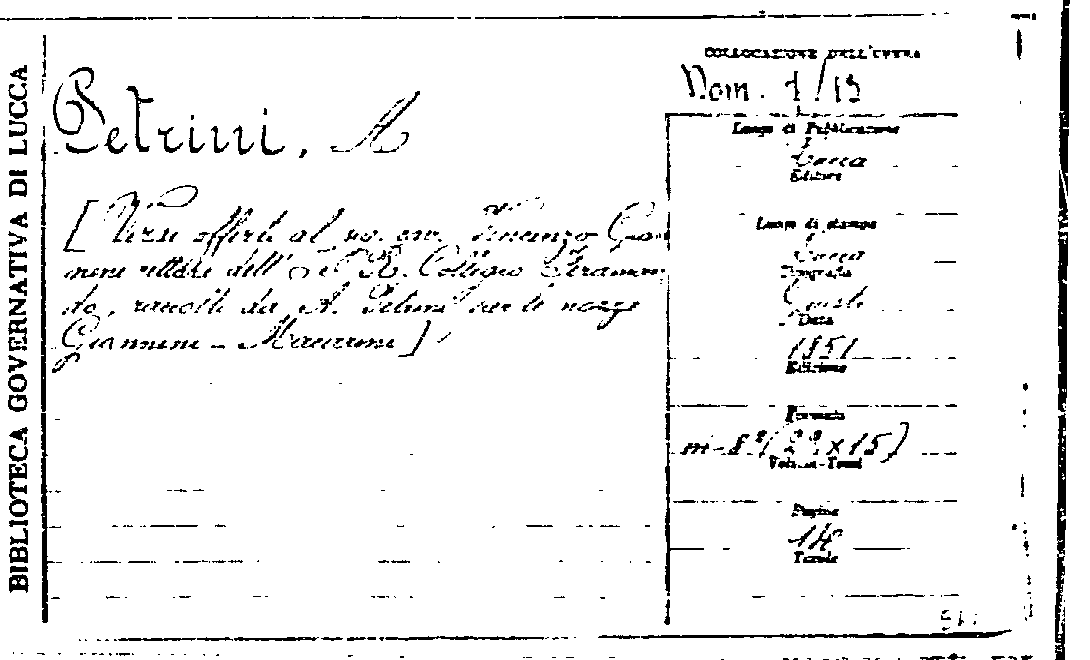 BIBLIOTECA GOVERNATIVA DI LUCCA
Petrini, A
[Versi offerti al sig. cav. Vincenzo Gian
nini rettore dell' I. e R. Collegio Ferdinan
do, raccolti da A. Petrini per le nozze
Giannini - Mansani]
COLLOCAZIONE DELL'OPERA
Nom. 1/13
Luogo di Pubblicazione
Lucca
Editore
Luogo di stampa
Lucca
Tipografia
Giusti
Data
1851
Edizione
Formato
in-8° (22x15)
Volumi-Tomi
Pagine
Tavole